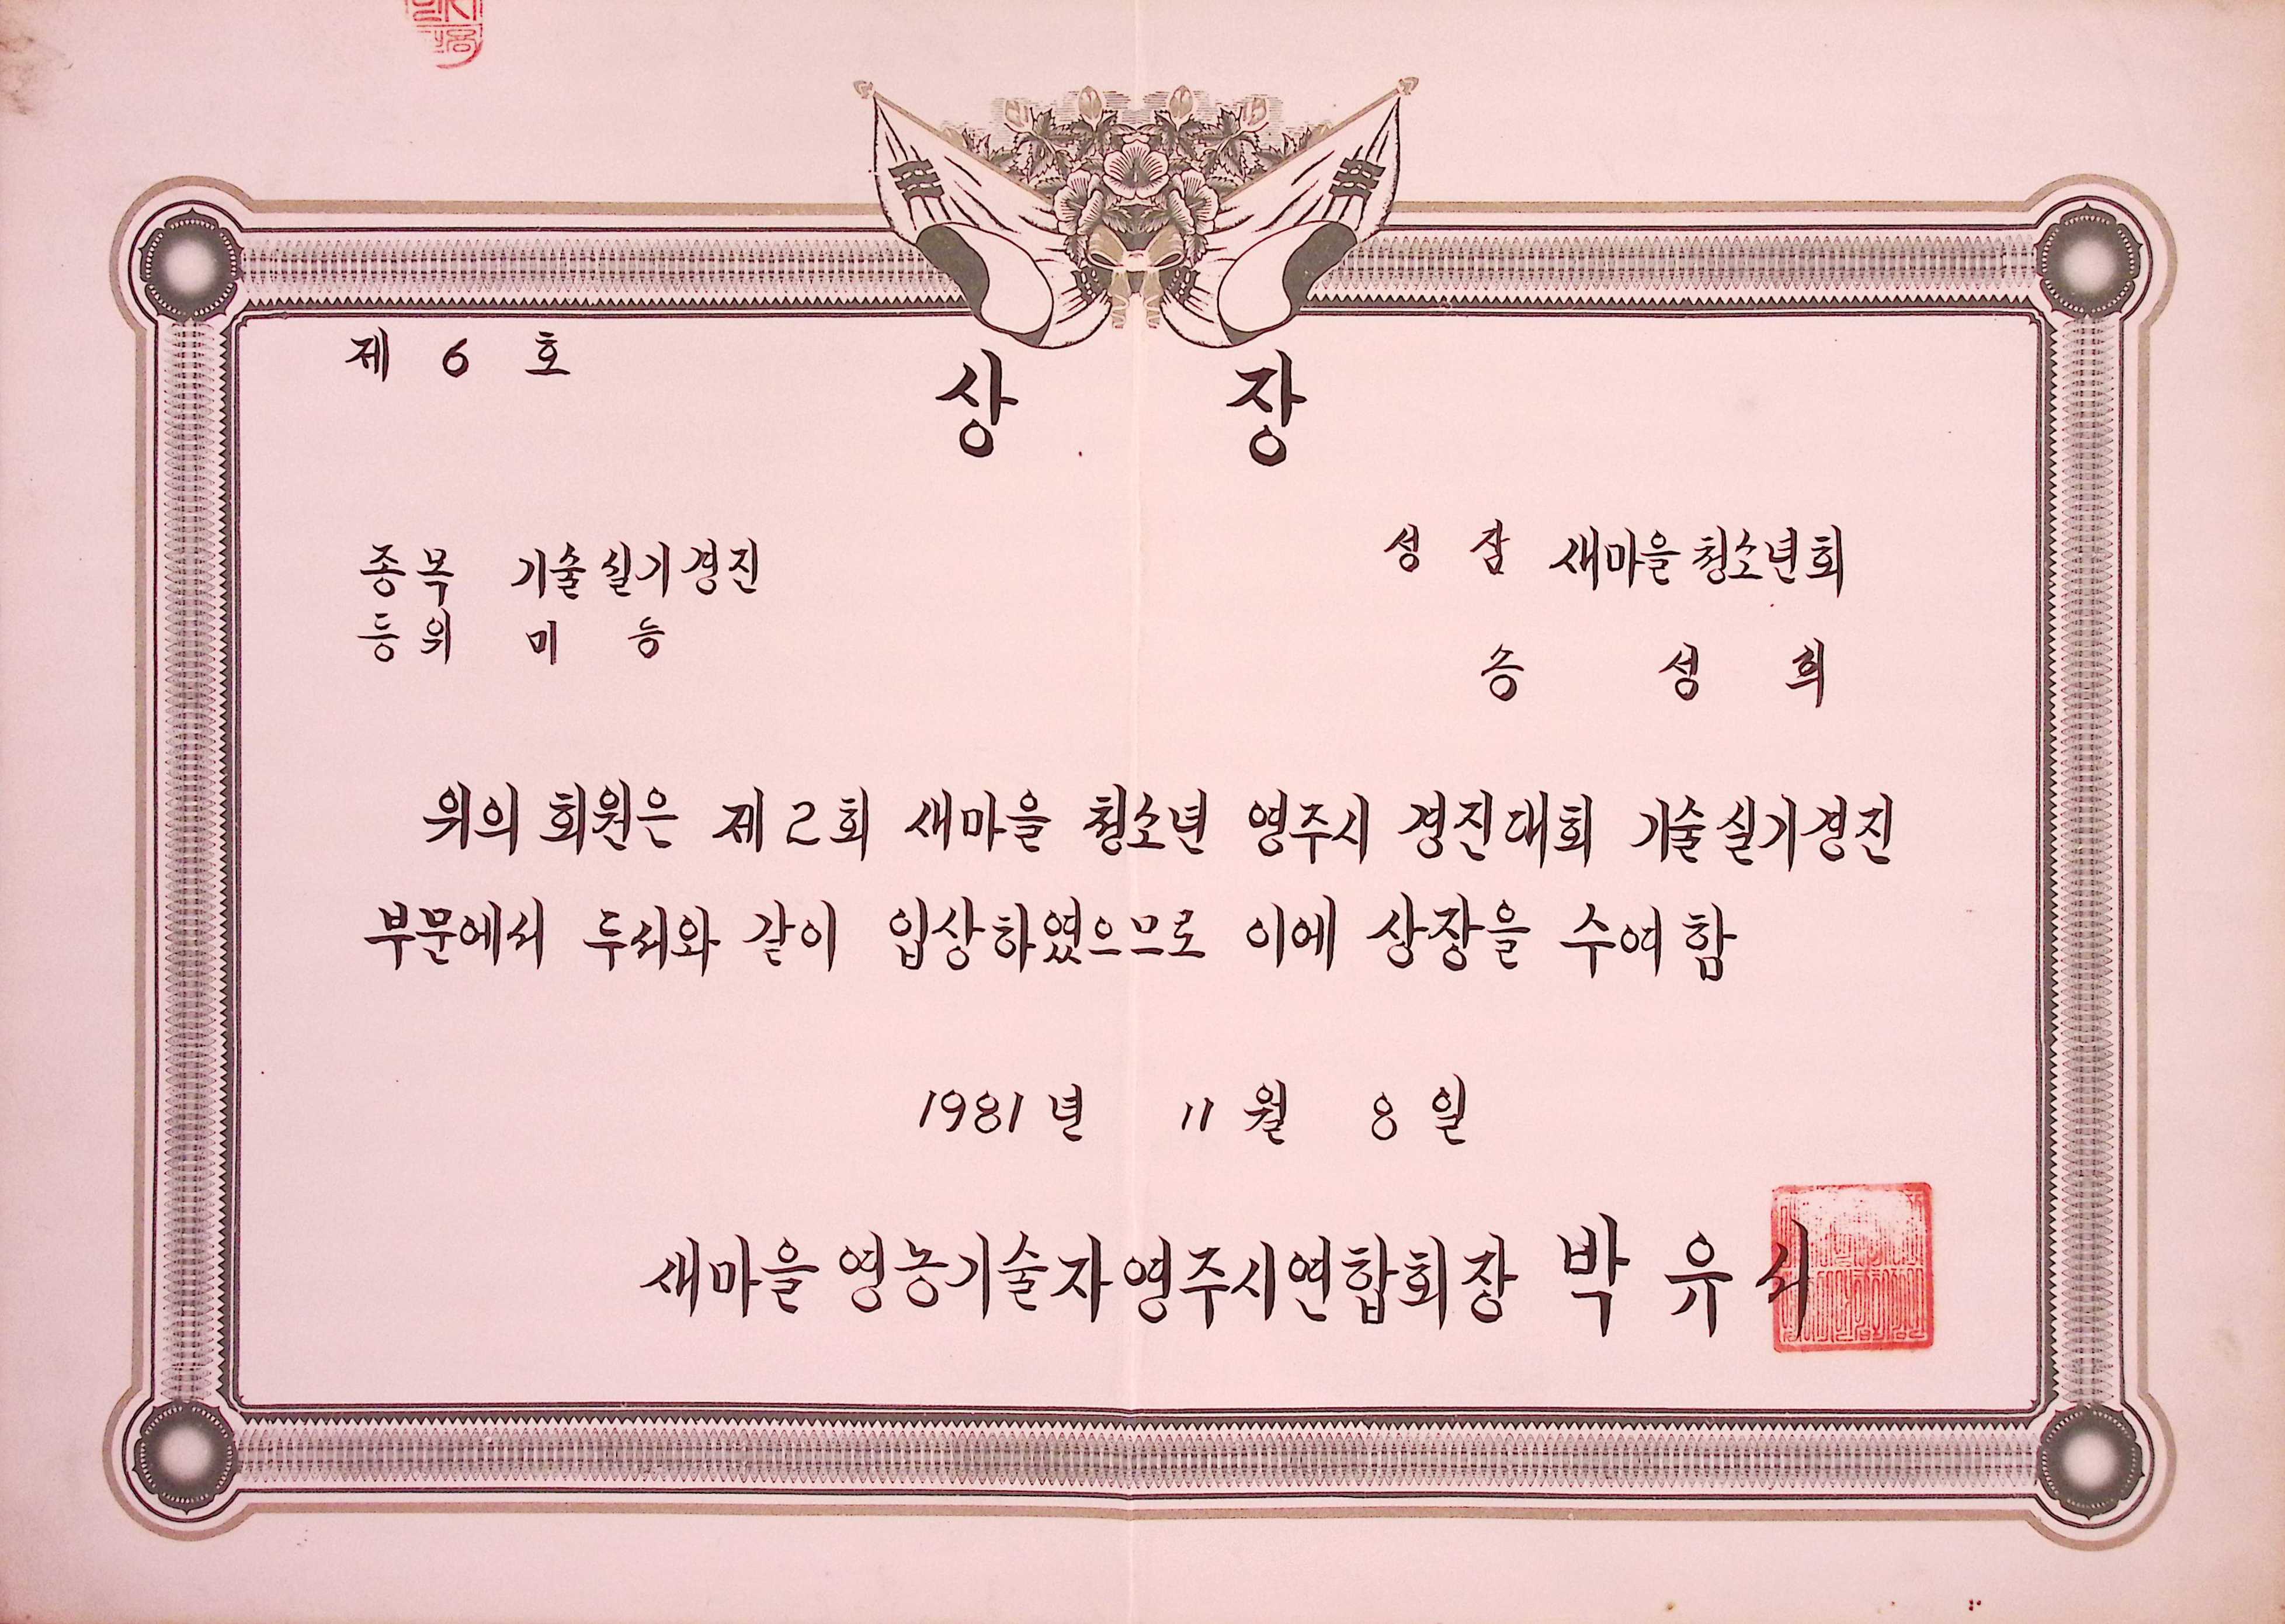 제 6 호
상 장
종목 기술실기경진
등위 미 능
성 잠 새마을청소년회
송 성 희
위의 회원은 제2회 새마을 청소년 영주시 경진대회 기술실기경진
부문에서 두서와 같이 입상하였으므로 이에 상장을 수여함
1981년 11월 8일
새마을영농기술자영주시연합회장 박 유 서